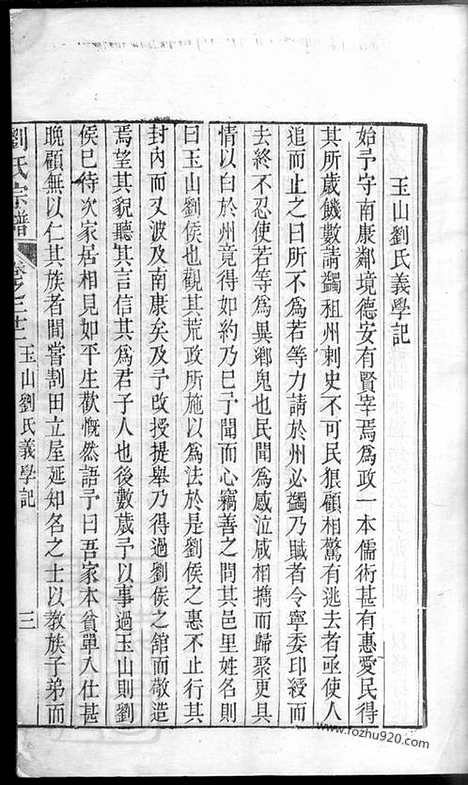 玉山劉氏義學記
始予守南康鄰境德安有賢宰焉爲政一本儒術甚有惠愛民得
其所歲饑數請蠲租州刺史不可民狼顧相驚有逃去者亟使人
追而止之曰所不爲若等力請於州必蠲乃賦者令寧委印綬而
去終不忍使若等爲異鄉鬼也民聞爲感泣咸相携而歸聚更具
情以白於州竟得如約乃已予聞而心竊善之問其邑里姓名則
曰玉山劉侯也觀其荒政所施以爲法於是劉侯之惠不止行其
封內而又波及南康矣及予改授提舉乃得過劉侯之舘而敬造
焉望其貌聽其言信其爲君子人也後數歲予以事過玉山則劉
侯已待次家居相見如平生歡慨然語予曰吾家本貧單入仕甚
晚顧無以仁其族者間嘗割田立屋延知名之士以教族子弟而
劉氏宗譜
卷之二十二
玉山劉氏義學記
三
www.fozhu920.com